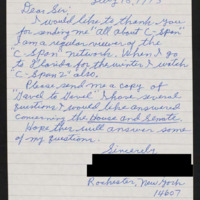 Dear Sir:
I would like to thank you
for sending me "All about C-Span"
I am a regular viewer of the
"C-Span" network. When I go
to Florida for the winter I watch
"C-Span 2" also.
Please send me a copy of
"Gavel to Gavel" I have several
questions I would like answered
concerning the House and Senate
Hope this will answer some
of my questions.
Sincerely
Rochester, New York
14607